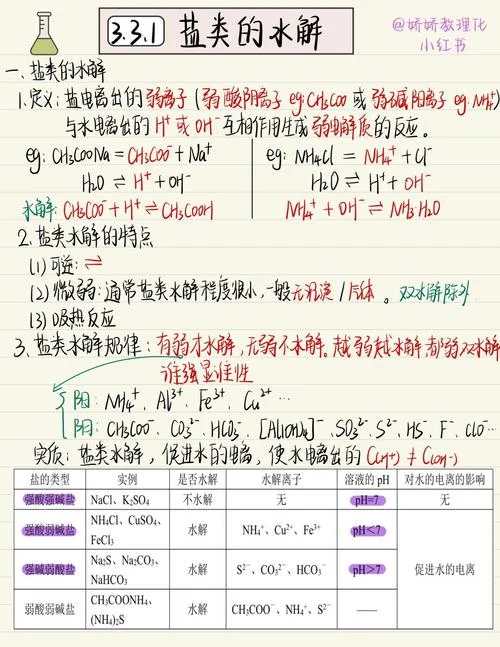 3.3.1 盐类的水解
@娇娇教理化
小红书
一、盐类的水解
1.定义:盐电离出的弱离子(弱酸阴离子 eg:CH₃COO⁻ 或弱碱阳离子 eg:NH₄⁺)
与水电离出的 H⁺ 或 OH⁻ 互相作用生成弱电解质的反应。
eg: CH₃COONa = CH₃COO⁻ + Na⁺
H₂O ⇌ H⁺ + OH⁻
水解: CH₃COO⁻ + H⁺ ⇌ CH₃COOH
eg: NH₄Cl = NH₄⁺ + Cl⁻
H₂O ⇌ H⁺ + OH⁻
NH₄⁺ + OH⁻ ⇌ NH₃·H₂O
2.盐类水解的特点
(1) 可逆: ⇌
(2) 微弱:通常盐类水解程度很小,一般无沉淀/气体。双水解除外
(3) 吸热反应
3.盐类水解规律:有弱才水解,无弱不水解。越弱越水解 都弱双水解
谁强显谁性
阳:NH₄⁺、Al³⁺、Fe³⁺、Cu²⁺…
阴:CH₃COO⁻、CO₃²⁻、HCO₃⁻、[Al(OH)₄]⁻、SO₃²⁻、S²⁻、HS⁻、F⁻、ClO⁻…
实质:盐类水解,促进水的电离,使水电离出的 C(H⁺) ≠ C(OH⁻)
盐的类型 实例 是否水解 水解离子 溶液的 pH 对水的电离的影响
强酸强碱盐 NaCl、K₂SO₄ 不水解 无 pH=7 无
强酸弱碱盐 NH₄Cl、CuSO₄、FeCl₃ 水解 NH₄⁺、Cu²⁺、Fe³⁺ pH<7 促进水的电离
强碱弱酸盐 Na₂S、Na₂CO₃、NaHCO₃ 水解 S²⁻、CO₃²⁻、HCO₃⁻ pH>7
弱酸弱碱盐 CH₃COONH₄、(NH₄)₂S 水解 CH₃COO⁻、NH₄⁺、S²⁻ ——